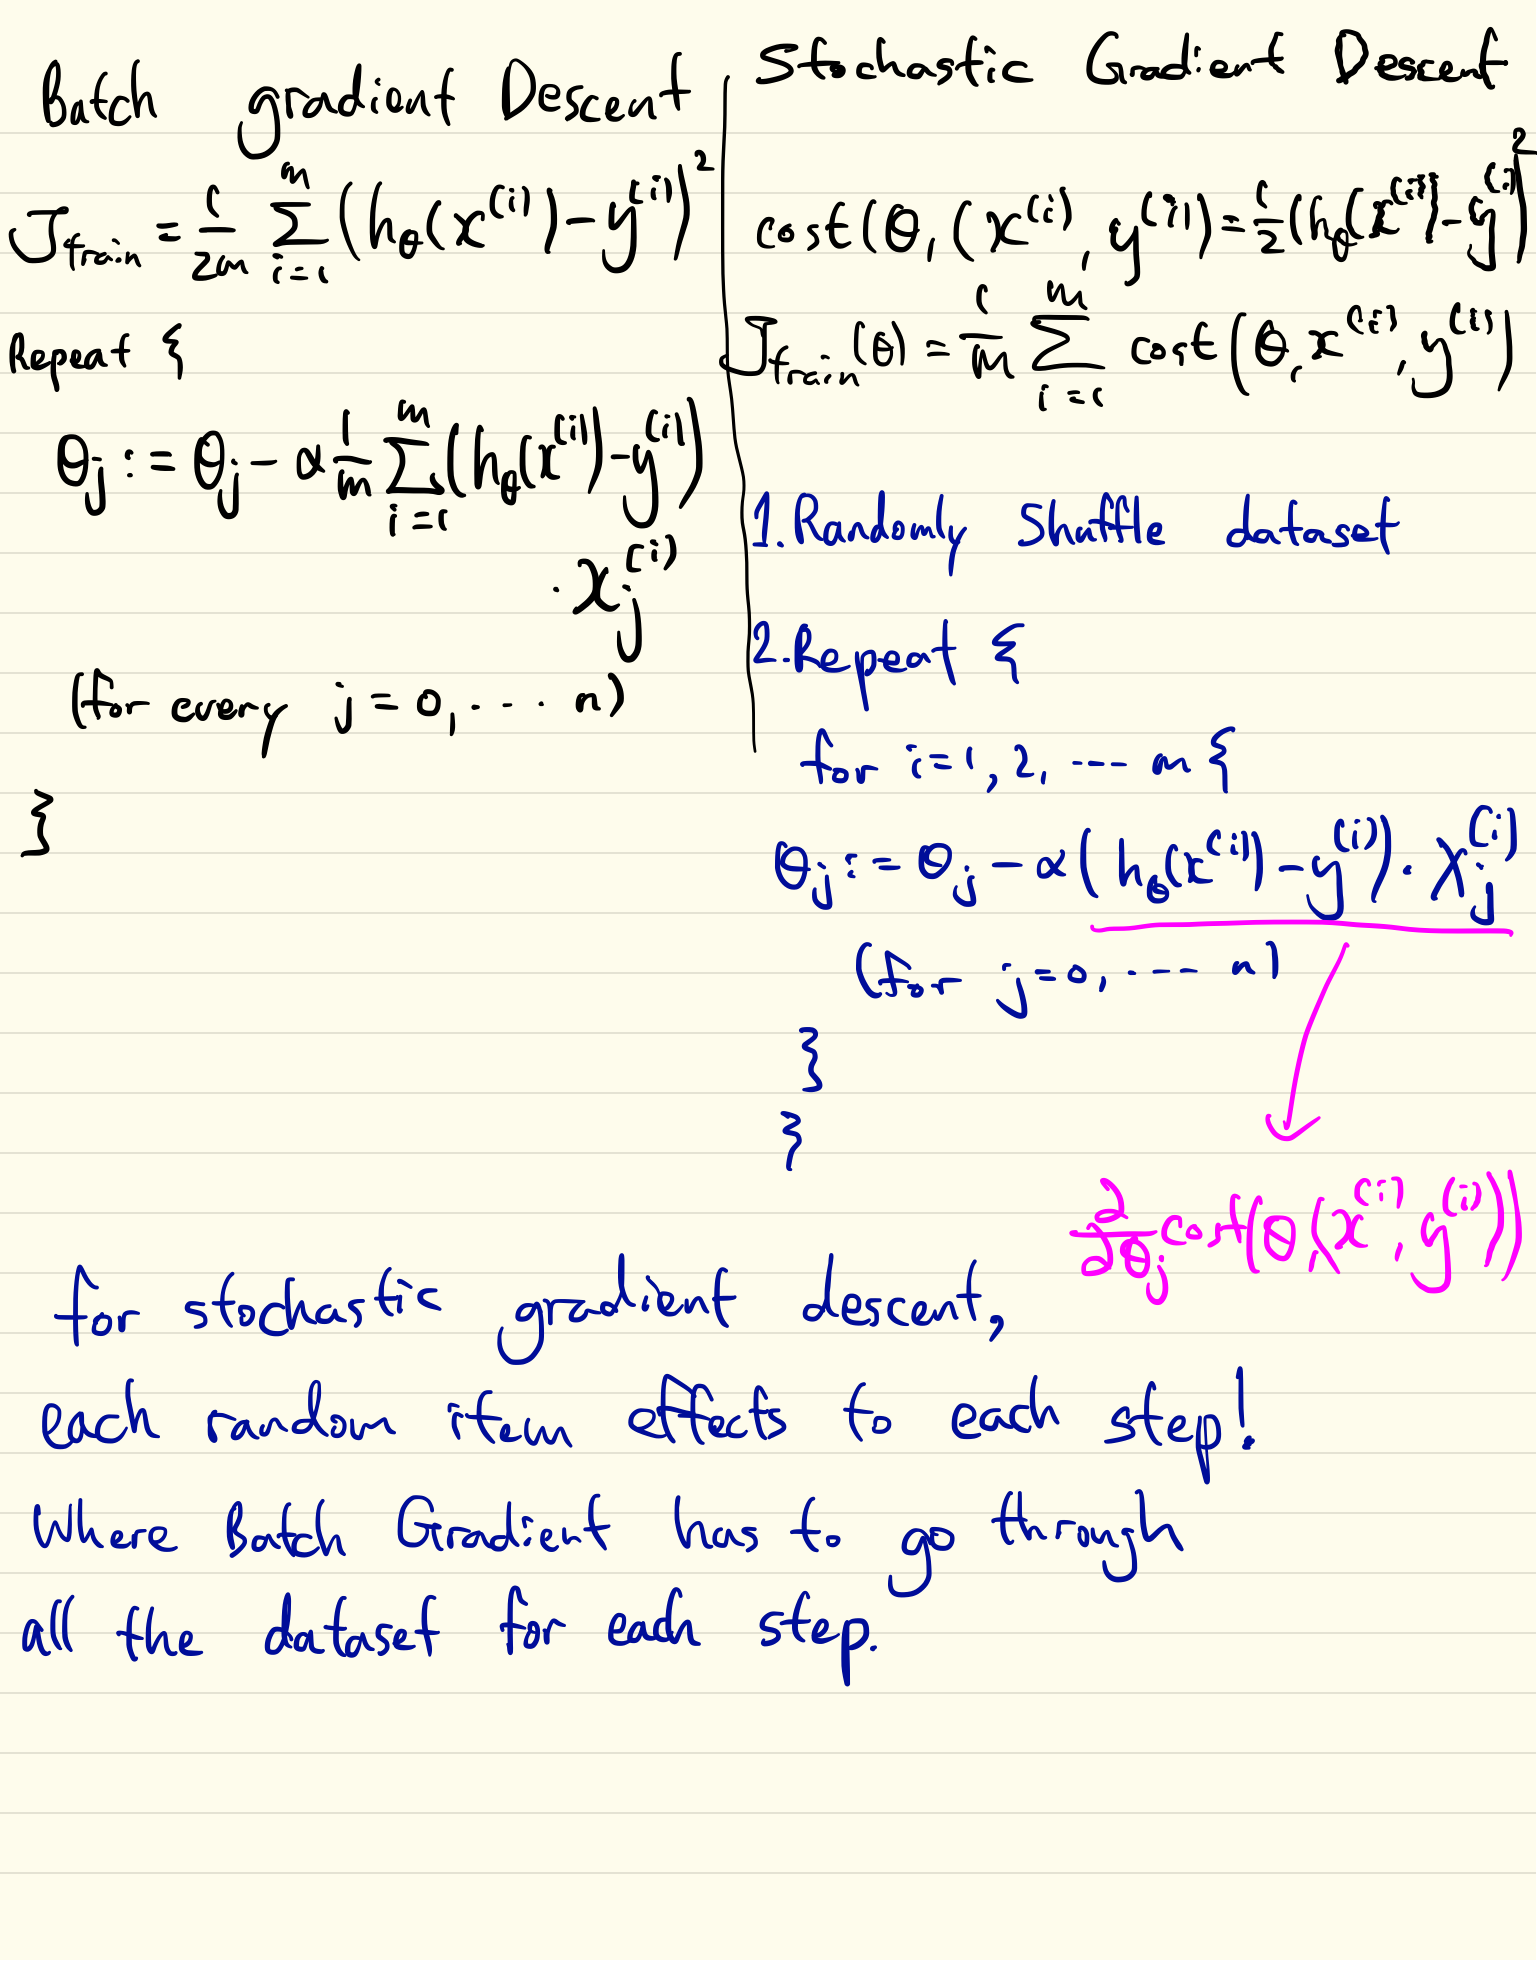 Batch gradient Descent
J_train = 1/2m Σ_{i=1}^{m} (h_θ(x^(i)) - y^(i))^2
Repeat {
θ_j := θ_j - α 1/m Σ_{i=1}^{m} (h_θ(x^(i)) - y^(i))
· x_j^(i)
(for every j = 0, ... n)
}
Stochastic Gradient Descent
cost(θ, (x^(i), y^(i)) = 1/2 (h_θ(x^(i)) - y^(i))^2
J_train(θ) = 1/m Σ_{i=1}^{m} cost(θ, x^(i), y^(i))
1. Randomly Shuffle dataset
2. Repeat {
for i=1, 2, ... m {
θ_j := θ_j - α (h_θ(x^(i)) - y^(i)) · x_j^(i)
(for j=0, ... n)
}
}
∂/∂θ_j cost(θ, (x^(i), y^(i)))
for stochastic gradient descent,
each random item effects to each step!
Where Batch Gradient has to go through
all the dataset for each step.